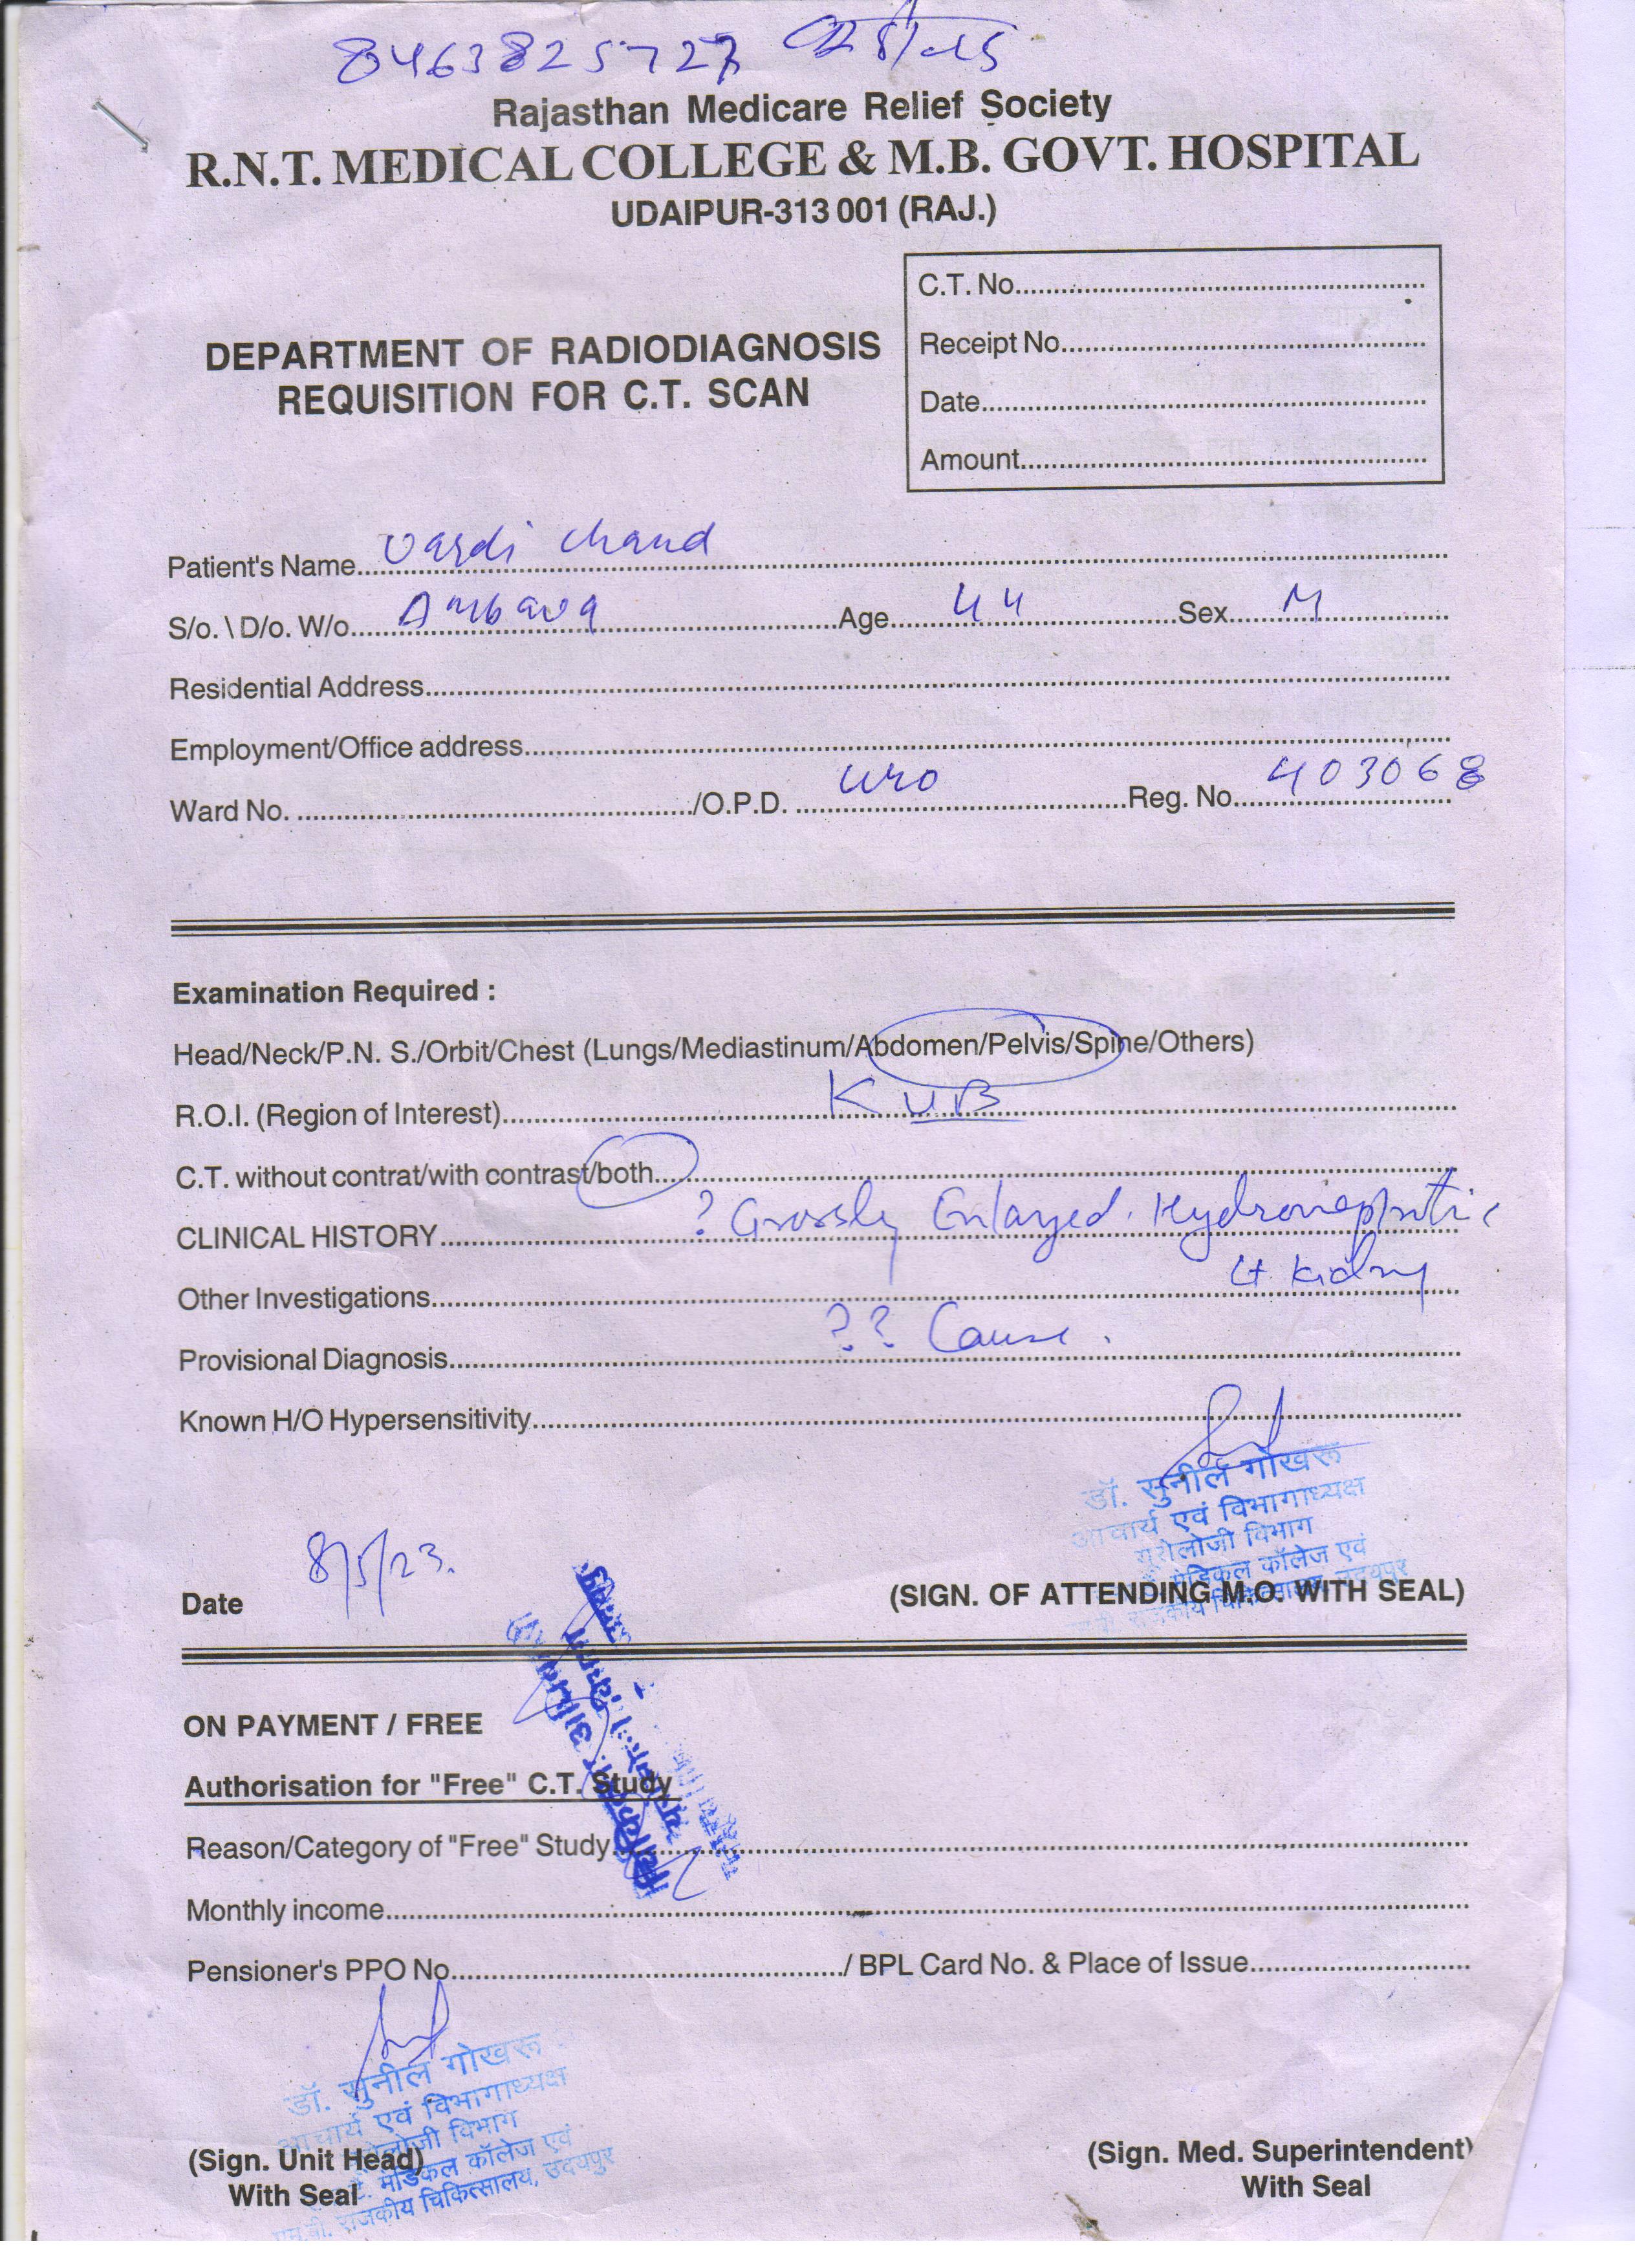 8463825727
Rajasthan Medicare Relief Society
R.N.T. MEDICAL COLLEGE & M.B. GOVT. HOSPITAL
UDAIPUR-313 001 (RAJ.)
C.T. No.
Receipt No.
Date
Amount
DEPARTMENT OF RADIODIAGNOSIS
REQUISITION FOR C.T. SCAN
Patient's Name Vardi chand
S/o. \ D/o. W/o Ambava Age 44 Sex M
Residential Address
Employment/Office address
Ward No. /O.P.D. uro Reg. No. 403068
Examination Required :
Head/Neck/P.N. S./Orbit/Chest (Lungs/Mediastinum/Abdomen/Pelvis/Spine/Others)
R.O.I. (Region of Interest) KUB
C.T. without contrat/with contrast/both
CLINICAL HISTORY ? Grossly Enlarged. Hydronephrotic
Other Investigations Lt kidney
Provisional Diagnosis ?? Cause.
Known H/O Hypersensitivity
डॉ. सुनील गोखरू
आचार्य एवं विभागाध्यक्ष
यूरोलोजी विभाग
मेडिकल कॉलेज एवं
राजकीय चिकित्सालय, उदयपुर
Date 8/5/23. (SIGN. OF ATTENDING M.O. WITH SEAL)
ON PAYMENT / FREE
Authorisation for "Free" C.T. Study
Reason/Category of "Free" Study
Monthly income
Pensioner's PPO No. / BPL Card No. & Place of Issue
डॉ. सुनील गोखरू
आचार्य एवं विभागाध्यक्ष
यूरोलोजी विभाग
मेडिकल कॉलेज एवं
एम.बी. राजकीय चिकित्सालय, उदयपुर
(Sign. Unit Head) (Sign. Med. Superintendent)
With Seal With Seal